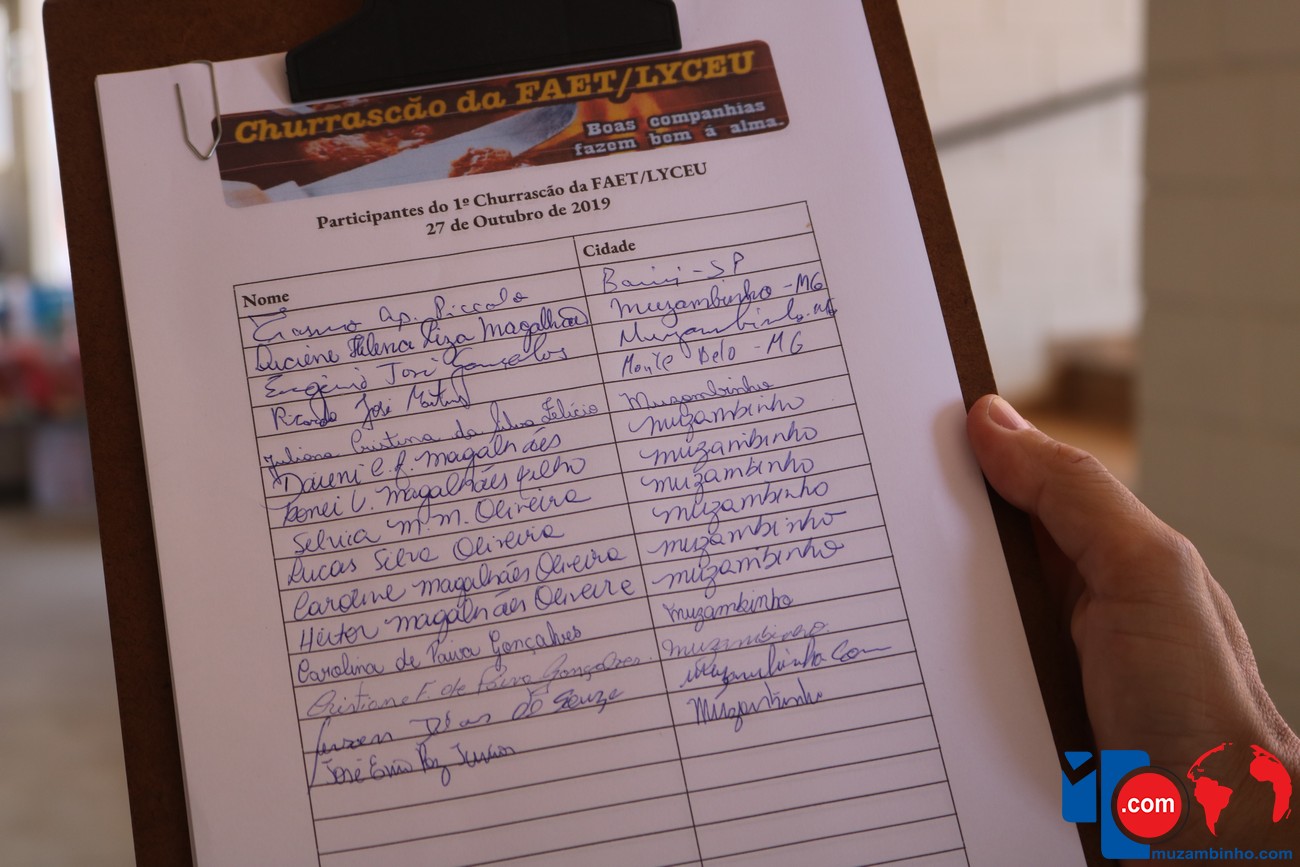 Churrascão da FAET/LYCEU
Boas companhias
fazem bem á alma.
Participantes do 1º Churrascão da FAET/LYCEU
27 de Outubro de 2019
Nome Cidade
Erasmo Ap. Piccolo - SP
Luciene Helena Piza Magalhães Muzambinho - MG
Eugênio José Gonçalves Muzambinho. MG
Ricardo José Martins Monte Belo - MG
Juliana Cristina da Silva Felício Muzambinho
magalhães muzambinho
V. Magalhães filho muzambinho
Selvia M. M. Oliveira muzambinho
Lucas Silva Oliveira muzambinho
Caroline magalhães Oliveira muzambinho
Heitor magalhães Oliveira muzambinho
Carolina de Paiva Gonçalves Muzambinho
Cristiane F. de Paiva Gonçalves. muzambinho.
Dias de Souza Muzambinho Com
José Paz Junior Muzambinho
.com
muzambinho.com